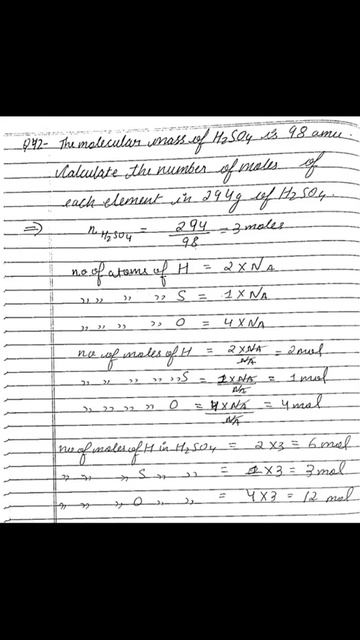 Q42- The molecular mass of H2SO4 is 98 amu.
Calculate the number of moles of
each element in 294g of H2SO4.
⇒ nH2SO4 = 294/98 = 3 moles
no of atoms of H = 2×NA
,, ,, ,, ,, S = 1×NA
,, ,, ,, ,, O = 4×NA
no. of moles of H = 2×NA/NA = 2mol
,, ,, ,, ,, ,, S = 1×NA/NA = 1 mol
,, ,, ,, ,, O = 4×NA/NA = 4 mol
no of moles of H in H2SO4 = 2×3 = 6 mol
,, ,, ,, S ,, ,, = 1×3 = 3mol
,, ,, ,, O ,, ,, = 4×3 = 12 mol